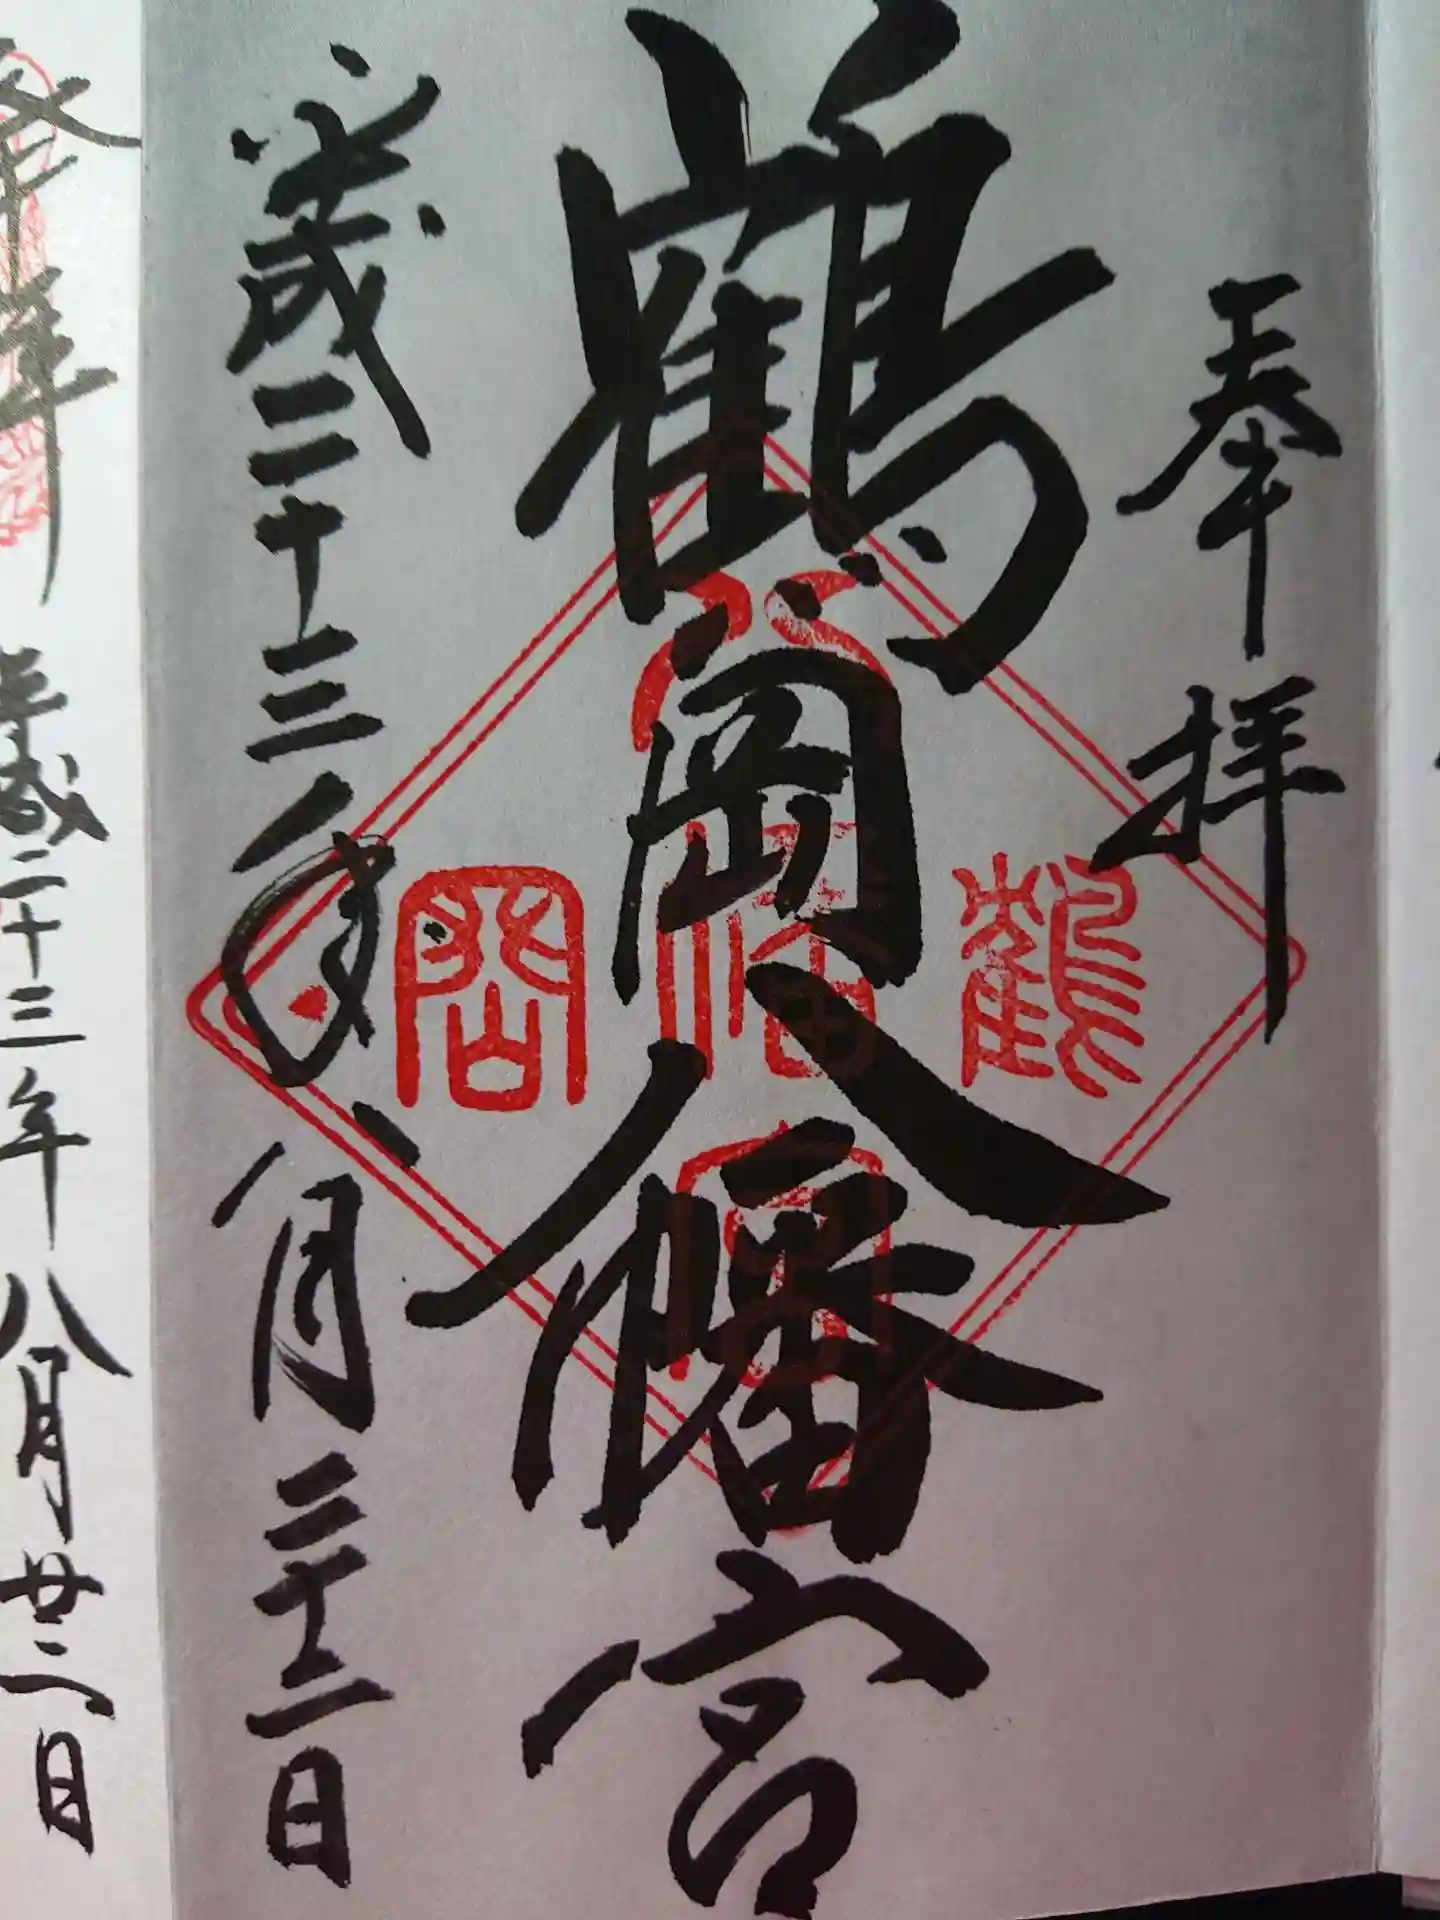 奉拝
鶴岡八幡宮
平成二十三年八月二十二日
鶴
岡
八
幡
宮
奉拝
平成二十三年八月廿二日